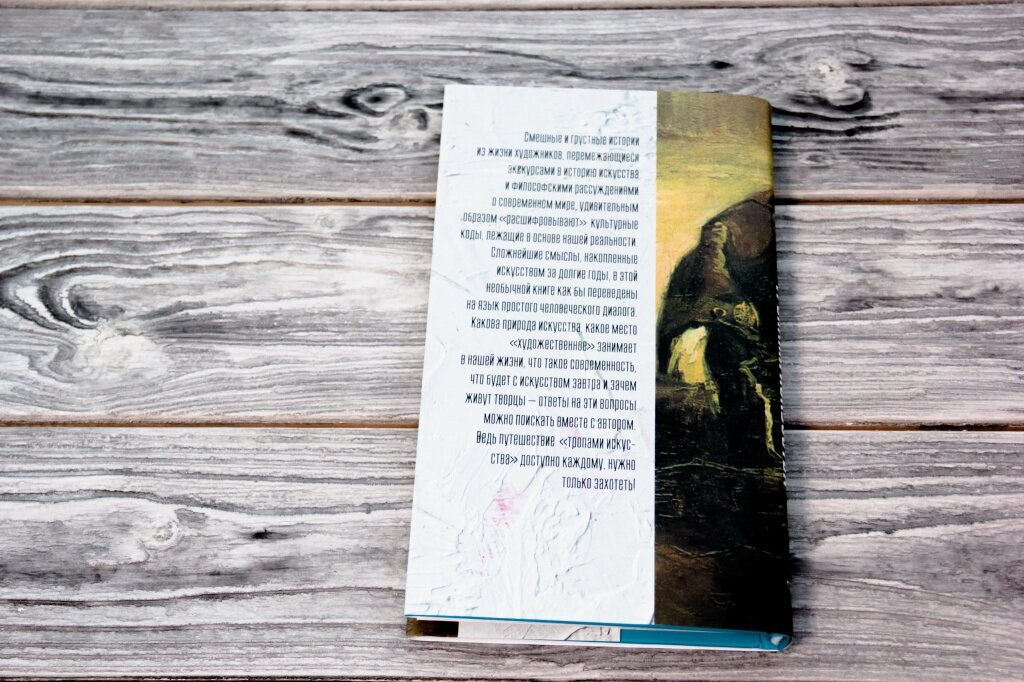 Смешные и грустные истории
из жизни художников, перемежающиеся
экскурсами в историю искусства
и философскими рассуждениями
о современном мире, удивительным
образом «расшифровывают» культурные
коды, лежащие в основе нашей реальности.
Сложнейшие смыслы, накопленные
искусством за долгие годы, в этой
необычной книге как бы переведены
на язык простого человеческого диалога.
Какова природа искусства, какое место
«художественное» занимает
в нашей жизни, что такое современность,
что будет с искусством завтра и зачем
живут творцы — ответы на эти вопросы
можно поискать вместе с автором.
Ведь путешествие «тропами искус-
ства» доступно каждому, нужно
только захотеть!